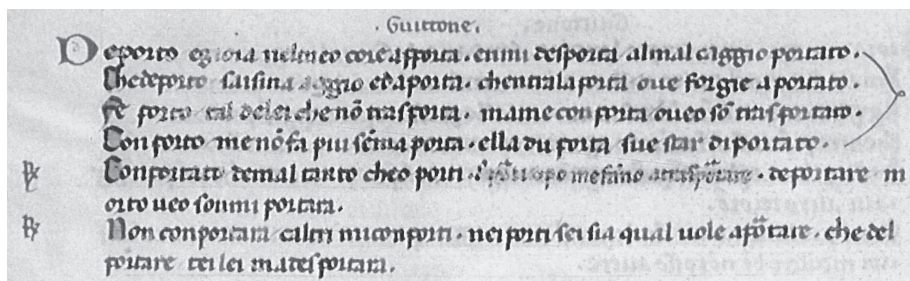 · Guittone ·
Deporto egioia nelmeo core apporta · emi desporta almal caggio portato ·
Che deporto saisina aggio edaporta · chentrala porta oue forgie aportato ·
porto tal delei che nō trasporta · mame con porta oueo sō trasportato ·
Conforto me nō fa piu sēma porta · ella du porta sue star diportato ·
Conportato demal tanto cheo porti · mesāno · deportare m
orto ueo sonmi portara ·
Non conportara caltri miconforti · nei porti sei sia qual uole apōtare · che del
portare lei matesportara ·